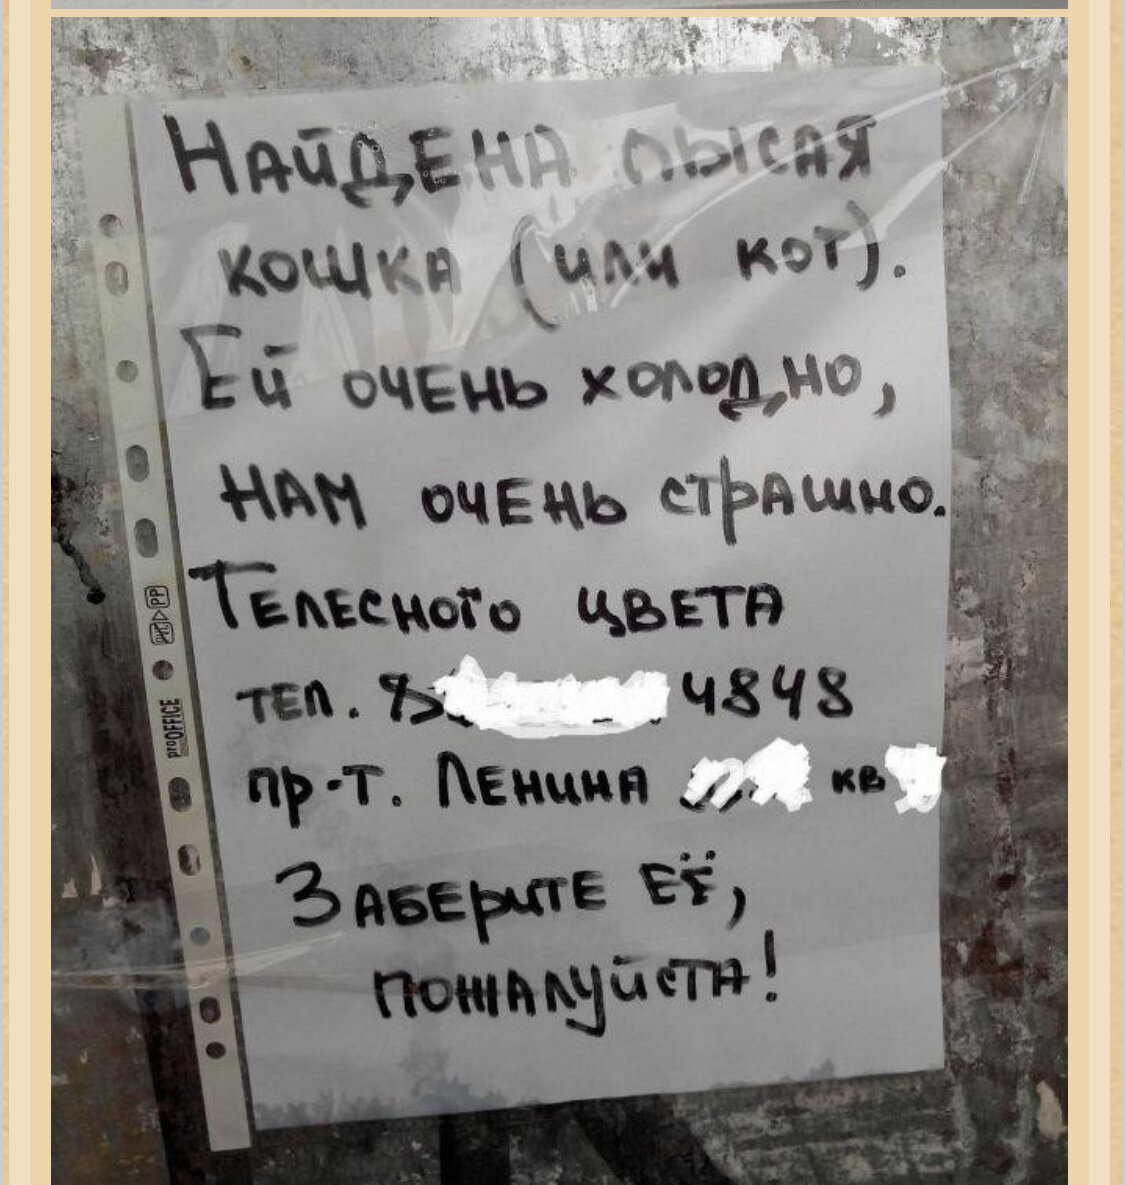 Найдена лысая
кошка (или кот).
Ей очень холодно,
нам очень страшно.
Телесного цвета
тел. 8 4848
пр-т. Ленина кв
Заберите её,
пожалуйста!
PP
proOFFICE